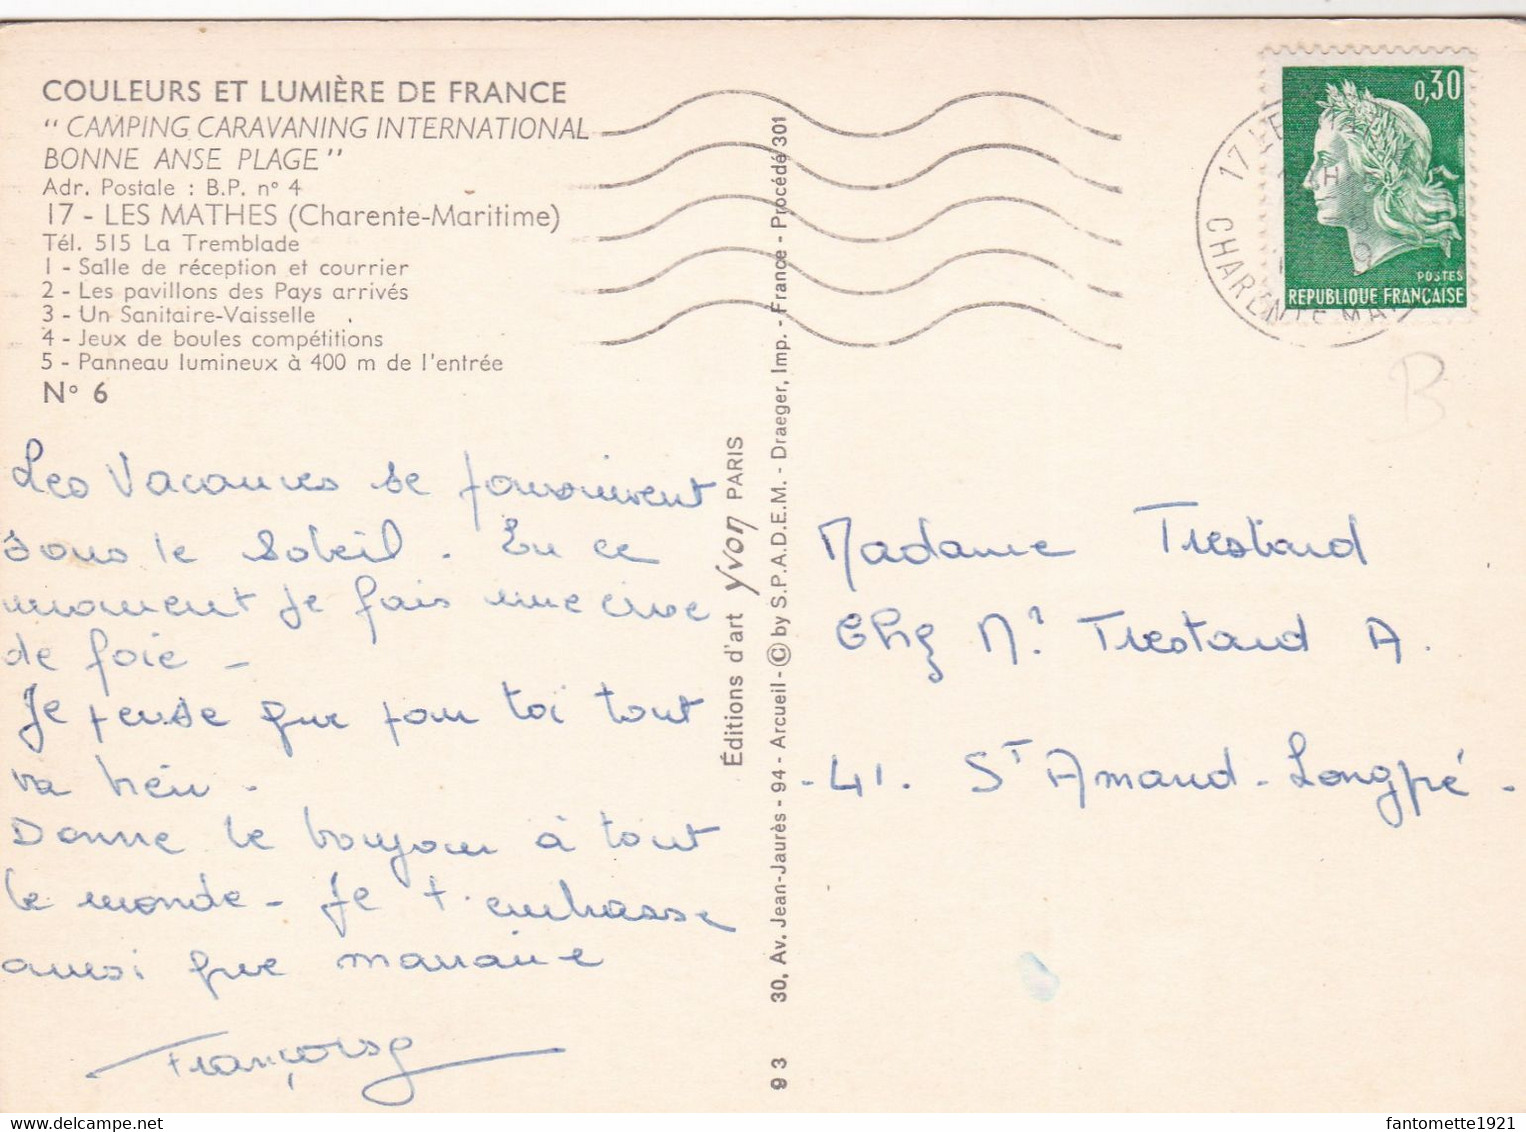 COULEURS ET LUMIÈRE DE FRANCE
" CAMPING CARAVANING INTERNATIONAL
BONNE ANSE PLAGE "
Adr. Postale : B.P. n° 4
17 - LES MATHES (Charente-Maritime)
Tél. 515 La Tremblade
1 - Salle de réception et courrier
2 - Les pavillons des Pays arrivés
3 - Un Sanitaire-Vaisselle
4 - Jeux de boules compétitions
5 - Panneau lumineux à 400 m de l'entrée
N° 6
Les Vacances se poursuivent
sous le soleil. En ce
moment je fais une crise
de foie -
Je pense que pour toi tout
va bien.
Donne le bonjour à tout
le monde - Je t'embrasse
ainsi que marraine
Françoise
Éditions d'art yvon PARIS
93 30, Av. Jean-Jaurès - 94 - Arcueil - © by S.P.A.D.E.M. - Draeger, Imp. - France - Procédé 301
0,30
POSTES
REPUBLIQUE FRANÇAISE
17 LE
CHARENTE MAR
B
Madame Trestard
Chez Mr Trestard A.
- 41. St Amand - Longpré -
fantomette1921